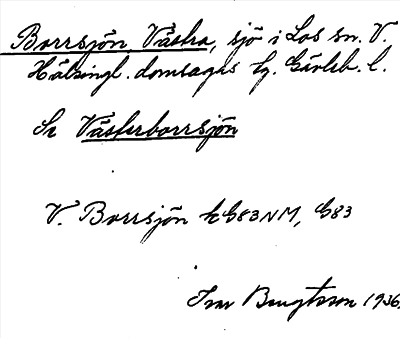 Borrsjön, Västra, sjö i Los sn. V.
Hälsingl. domsagas tg. Gävleb. l.
Se Västerborrsjön
V. Borrsjön k G83NM, G83
Ivar Bengtsson 1936.